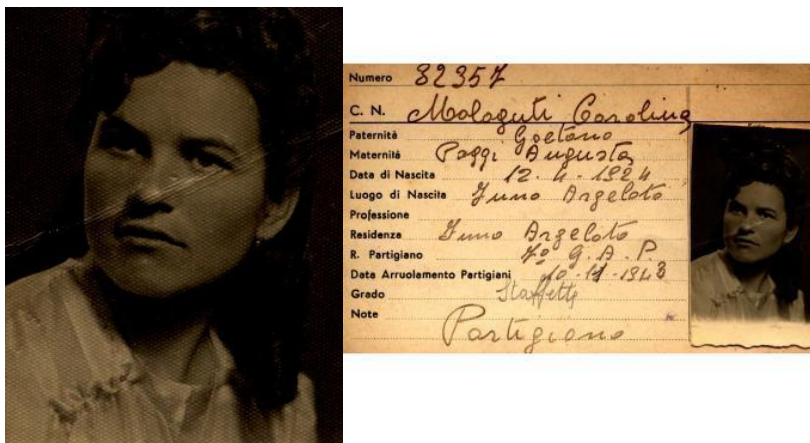 Numero 82357
C. N. Malaguti Carolina
Paternità Gaetano
Maternità Poggi Augusta
Data di Nascita 12-4-1924
Luogo di Nascita Funo Argelato
Professione
Residenza Funo Argelato
R. Partigiano 7º G.A.P.
Data Arruolamento Partigiani 10-11-1943
Grado Staffetta
Note
Partigiano